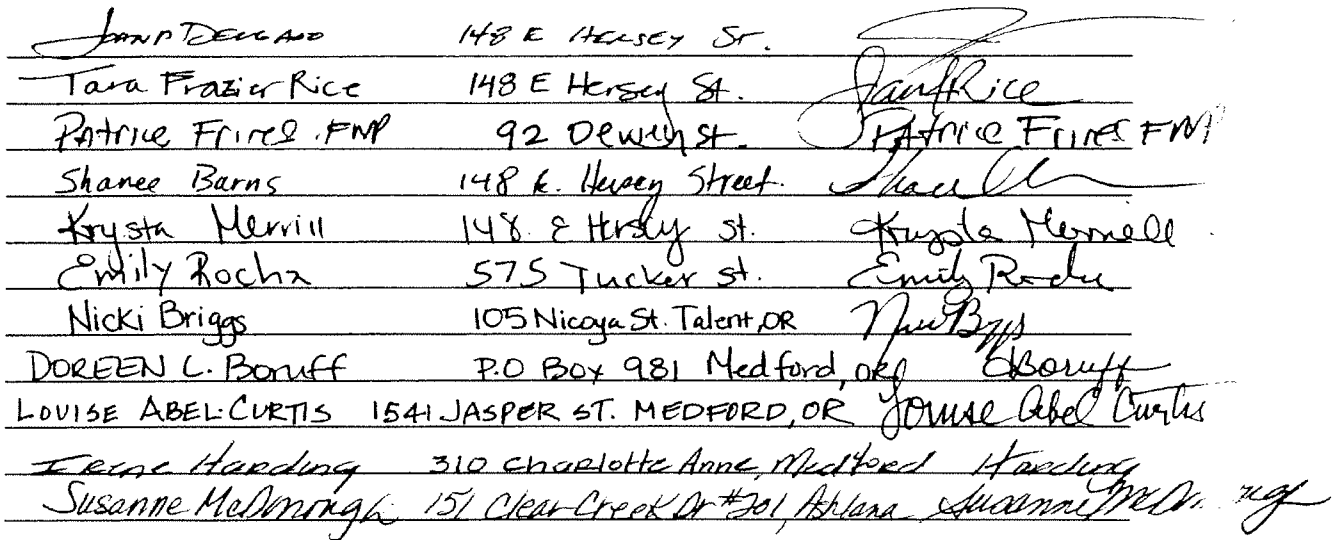 Joann Delgado 148 E Hersey St.
Tara Frazier Rice 148 E Hersey St. Rice
Patrice Frires FNP 92 Dewey St. Patrice Frires FNP
Shanee Barns 148 E. Hersey Street.
Krysta Merrill 148 E Hersey St. Krysta Merrill
Emily Rocha 575 Tucker St. Emily Rocha
Nicki Briggs 105 Nicoya St. Talent, OR
DOREEN L. Boruff P.O Box 981 Medford, ORE Boruff
LOUISE ABEL-CURTIS 1541 JASPER ST. MEDFORD, OR Louise Abel Curtis
Irene Harding 310 Charlotte Anne, Medford Harding
Susanne McDonough 151 Clear Creek Dr #201, Ashland Susanne